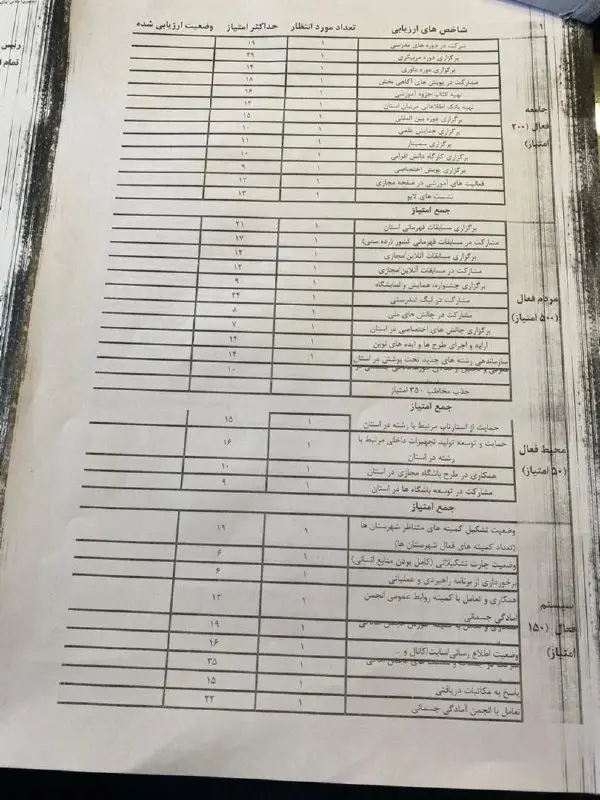 رئیس
تمام
۱
شاخص های ارزیابی تعداد مورد انتظار حداکثر امتیاز وضعیت ارزیابی شده
جامعه فعال (۲۰۰ امتیاز)
شرکت در دوره های مدرسی ۱ ۱۹
برگزاری دوره مربیگری ۱ ۲۹
برگزاری دوره داوری ۱ ۱۴
مشارکت در پویش های آگاهی بخش ۱ ۱۸
تهیه کتاب/جزوه آموزشی ۱ ۱۶
تهیه بانک اطلاعاتی مربیان استان ۱ ۱۲
برگزاری دوره بین المللی ۱ ۱۵
برگزاری همایش علمی ۱ ۱۰
برگزاری سمینار ۱ ۱۱
برگزاری کارگاه دانش افزایی ۱ ۱۰
برگزاری پویش اختصاصی ۱ ۹
فعالیت های آموزشی در صفحه مجازی ۱ ۱۲
نشست های لایو ۱ ۱۳
جمع امتیاز
مردم فعال (۵۰۰ امتیاز)
برگزاری مسابقات قهرمانی استان ۱ ۲۱
مشارکت در مسابقات قهرمانی کشور (رده سنی) ۱ ۱۷
برگزاری مسابقات آنلاین/مجازی ۱ ۱۴
مشارکت در مسابقات آنلاین/مجازی ۱ ۱۲
برگزاری جشنواره، همایش و نمایشگاه ۱ ۹
مشارکت در لیگ تندرستی ۱ ۲۴
مشارکت در چالش های ملی ۱ ۸
برگزاری چالش های اختصاصی در استان ۱ ۷
ارایه و اجرای طرح ها و ایده های نوین ۱ ۱۴
سازماندهی رشته های جدید تحت پوشش در استان ۱ ۱۴
۱۰
جذب مخاطب ۳۵۰ امتیاز
جمع امتیاز
محیط فعال (۵۰ امتیاز)
حمایت از استارتاپ مرتبط با رشته در استان ۱ ۱۵
حمایت و توسعه تولید تجهیزات داخلی مرتبط با رشته در استان ۱ ۱۶
همکاری در طرح باشگاه مجازی در استان ۱ ۱۰
مشارکت در توسعه باشگاه ها در استان ۱ ۹
جمع امتیاز
سیستم فعال (۱۵۰ امتیاز)
وضعیت تشکیل کمیته های متناظر شهرستان ها
(تعداد کمیته های فعال شهرستان ها) ۱ ۱۹
وضعیت چارت تشکیلاتی (کامل بودن منابع انسانی) ۱ ۶
برخورداری از برنامه راهبردی و عملیاتی ۱ ۶
همکاری و تعامل با کمیته روابط عمومی انجمن
آمادگی جسمانی ۱ ۱۳
۱ ۱۹
وضعیت اطلاع رسانی/سایت/کانال و ... ۱ ۱۶
۱ ۳۵
پاسخ به مکاتبات دریافتی ۱ ۱۵
تعامل با انجمن آمادگی جسمانی ۱ ۲۲